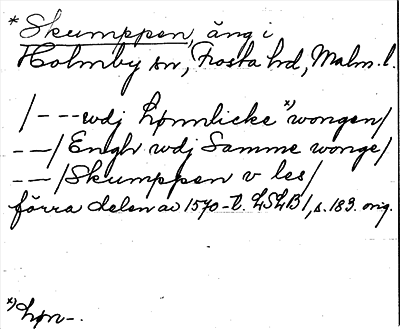 * Skumppen, äng i
Holmby sn, Frosta hd, Malm. l.
/ - - - wdj Lønnlicke *) wongen/
- - / Engh wdj Samme wonge/
- - / Skumppen v les/
förra delen av 1570-t. LSLB 1, s. 183. orig.
*) Løn-.